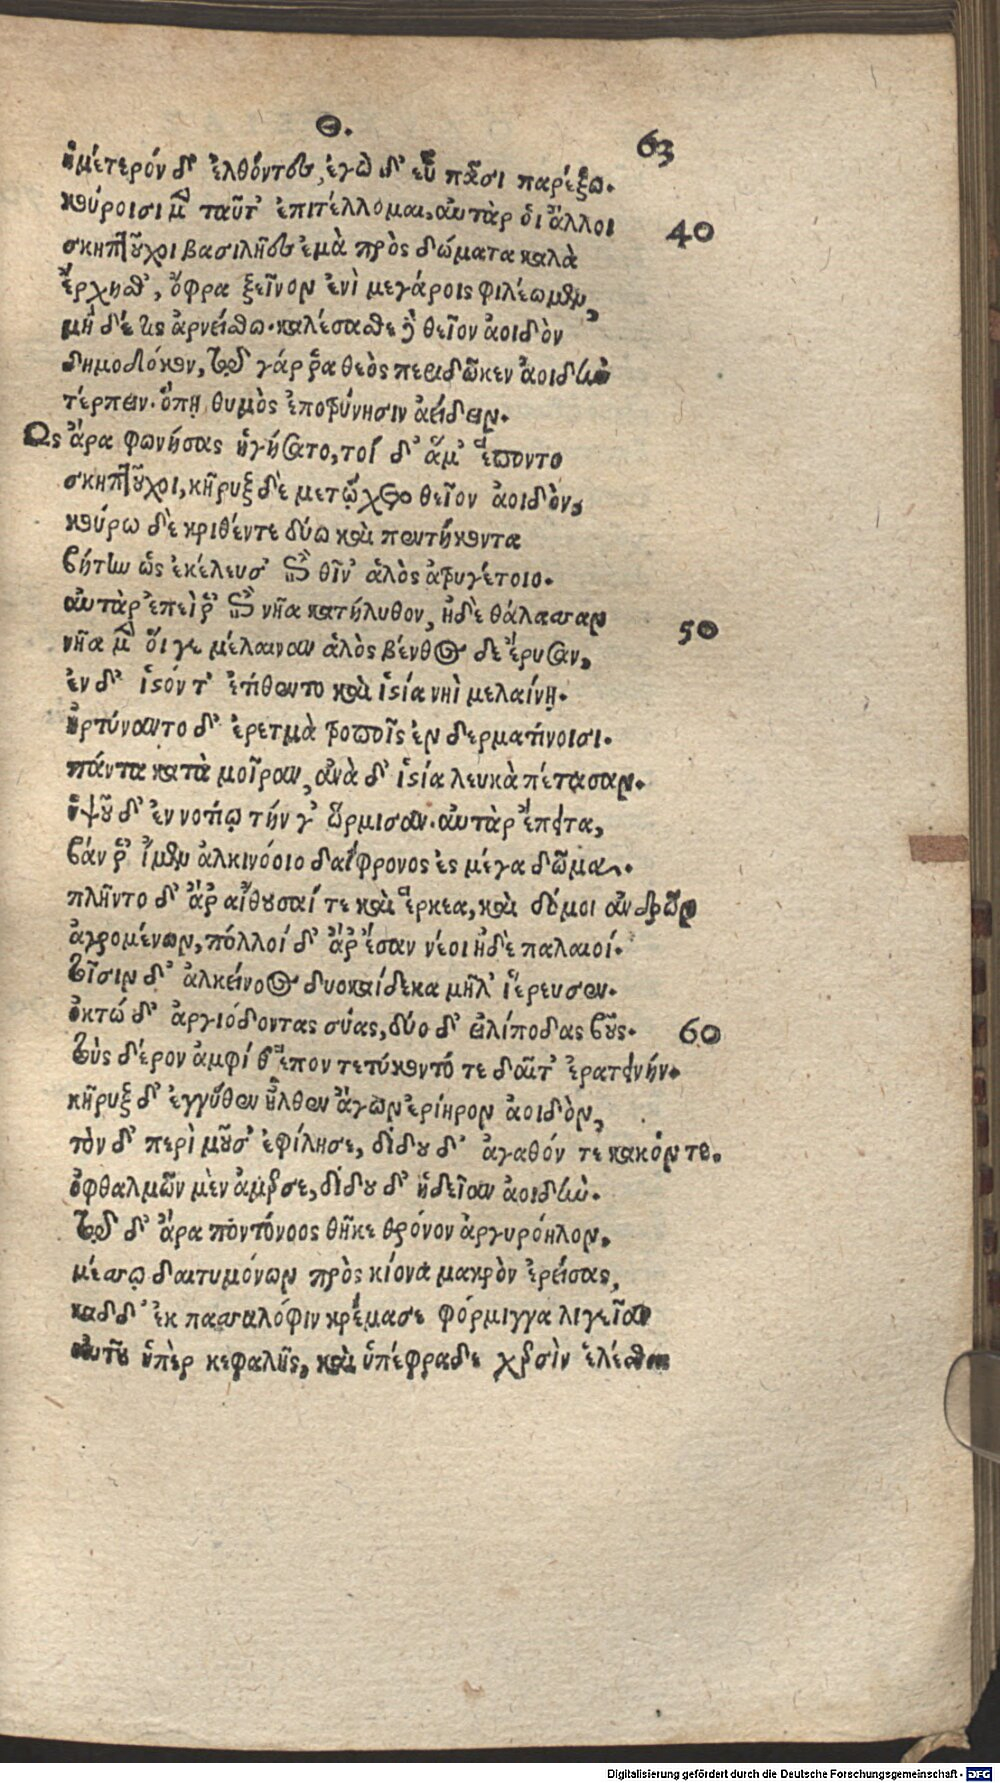 Θ.
63
ἡμέτερόν δ' ἐλθόντες, ἐγὼ δ' εὖ πᾶσι παρέξω.
κούροισι μὲν ταῦτ' ἐπιτέλλομαι, αὐτὰρ ὁι ἄλλοι
40
σκηπτοῦχοι βασιλῆες ἐμὰ πρὸς δώματα καλὰ
ἔρχησθ', ὄφρα ξεῖνον ἐνὶ μεγάροις φιλέωμεν,
μὴ δέ τις ἀρνείσθω. καλέσασθε δὲ θεῖον ἀοιδὸν
δημοδόκον, τῷ γάρ ῥα θεὸς περιδῶκεν ἀοιδὴν
τέρπειν. ὅπῃ θυμὸς ἐποτρύνησιν ἀείδειν.
Ως ἄρα φωνήσας ἡγήσατο, τοὶ δ' ἅμ' ἕποντο
σκηπτοῦχοι, κῆρυξ δὲ μετῴχετο θεῖον ἀοιδὸν,
κούρω δὲ κριθέντε δύω καὶ πεντήκοντα
βήτην ὡς ἐκέλευσ' ἐπὶ θῖν' ἁλὸς ἀτρυγέτοιο.
αὐτὰρ ἐπεὶ ῥ' ἐπὶ νῆα κατήλυθον, ἠδὲ θάλασσαν
50
νῆα μὲν ὅι γε μέλαιναν ἁλὸς βένθος δὲ ἔρυσαν,
ἐν δ' ἱστόν τ' ἐτίθεντο καὶ ἱστία νηὶ μελαίνῃ.
ἠρτύναντο δ' ἐρετμὰ τροποῖς ἐν δερματίνοισι.
πάντα κατὰ μοῖραν, ἀνὰ δ' ἱστία λευκὰ πέτασαν.
ὑψοῦ δ' ἐν νοτίῳ τήν γ' ὥρμισαν. αὐτὰρ ἔπειτα,
βάν ῥ' ἴμεν ἀλκινόοιο δαΐφρονος ἐς μέγα δῶμα.
πλῆντο δ' ἄρ' αἴθουσαί τε καὶ ἕρκεα, καὶ δόμοι ἀνδρῶν
ἀγρομένων, πόλλοί δ' ἄρ' ἔσαν νέοι ἠδὲ παλαιοί.
τοῖσιν δ' ἀλκείνοος δυοκαίδεκα μῆλ' ἱέρευσεν.
ὀκτώ δ' ἀργιόδοντας σύας, δύο δ' εἰλίποδας βοῦς.
60
τοὺς δέρον ἀμφί θ' ἕπον τετύκοντό τε δαῖτ' ἐρατεινήν.
κῆρυξ δ' ἐγγύθεν ἦλθεν ἄγων ἐρίηρον ἀοιδὸν,
τὸν δ' περὶ μοῦσ' ἐφίλησε, δίδου δ' ἀγαθόν τε κακόν τε.
ὀφθαλμῶν μὲν ἄμερσε, δίδου δ' ἡδεῖαν ἀοιδὴν.
τῷ δ' ἄρα πόντόνοος θῆκε θρόνον ἀργυρόηλον,
μέσσῳ δαιτυμόνων πρὸς κίονα μακρὸν ἐρείσας,
καδδ' ἐκ πασσαλόφιν κρέμασε φόρμιγγα λιγεῖαν
αὐτοῦ ὑπὲρ κεφαλῆς, καὶ ὑπέφραδε χερσὶν ἑλέσθαι
Digitalisierung gefördert durch die Deutsche Forschungsgemeinschaft - DFG